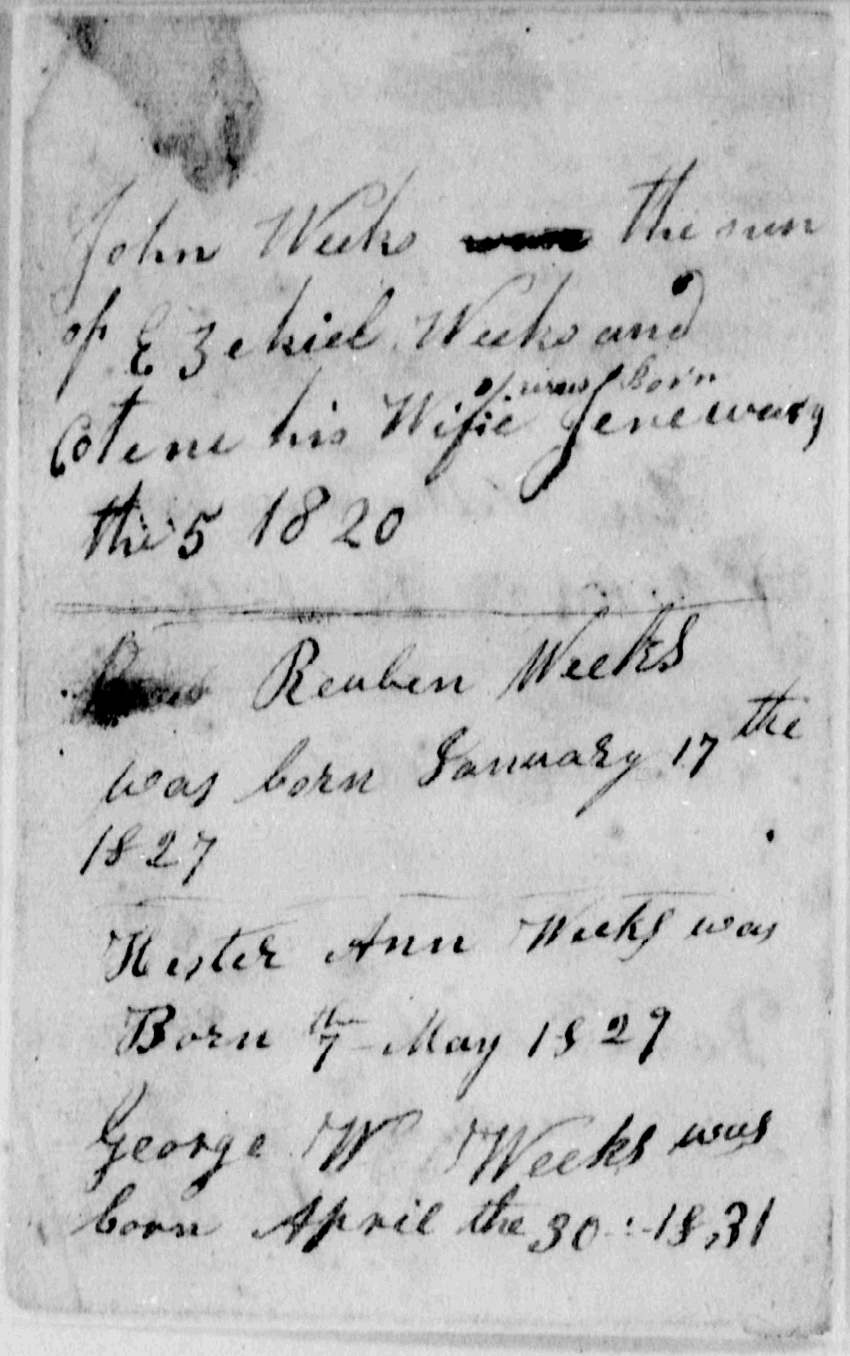 John Weeks the sun
of Ezekiel Weeks and
was Born
his Wife Jenewary
the 5 1820
Reuben Weeks
was born January 17 the
1827
Hester Ann Weeks was
Born 7th May 1829
George W Weeks was
born April the 30 :-1831